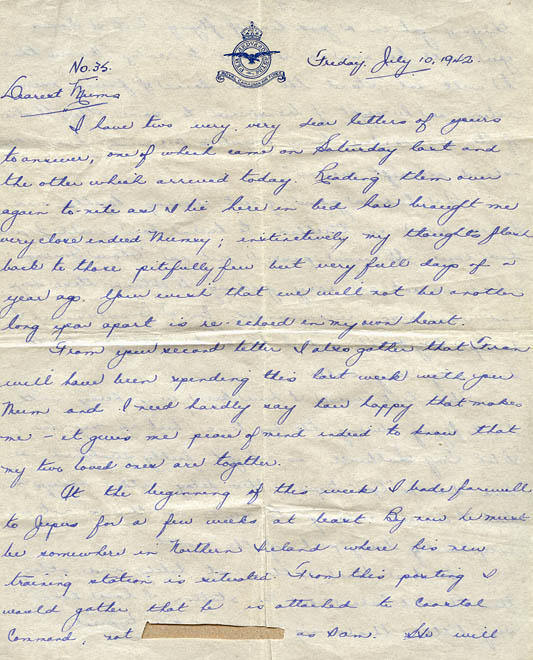 No. 35.
Friday, July 10, 1942
Dearest Mums
I have two very, very dear letters of yours
to answer, one of which came on Saturday last and
the other which arrived today. Reading them over
again to-nite as I lie here in bed has brought me
very close indeed Mumsy; instinctively my thoughts flash
back to those pitifully few but very full days of a
year ago. Your wish that we will not be another
long year apart is re-echoed in my own heart.
From your second letter I also gather that Fran
will have been spending this last week with you
Mum and I need hardly say how happy that makes
me - it gives me peace of mind indeed to know that
my two loved ones are together.
At the beginning of this week I bade farewell
to for a few weeks at least. By now he must
be somewhere in Northern Ireland where his new
training station is situated. From this posting I
would gather that he is attached to Coastal
Command, not as I am. He will